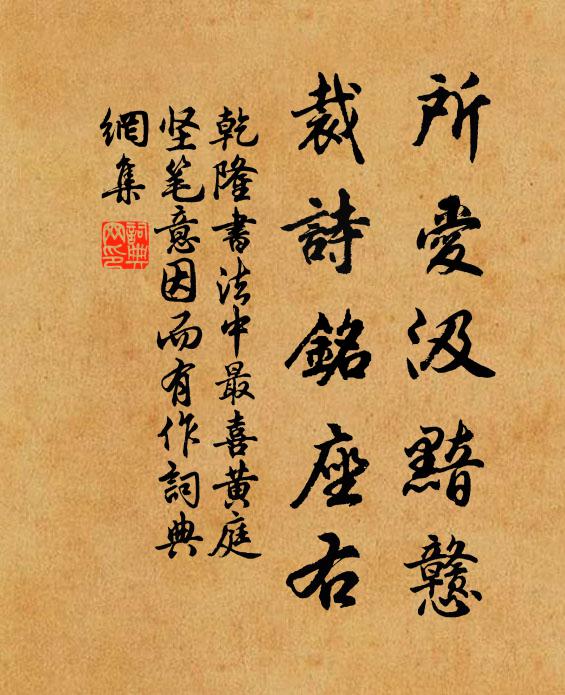 所愛汲黯戇
裁詩銘座右
乾隆書法中最喜黃庭
坚笔意因而有作詞典
網集
詞典網印